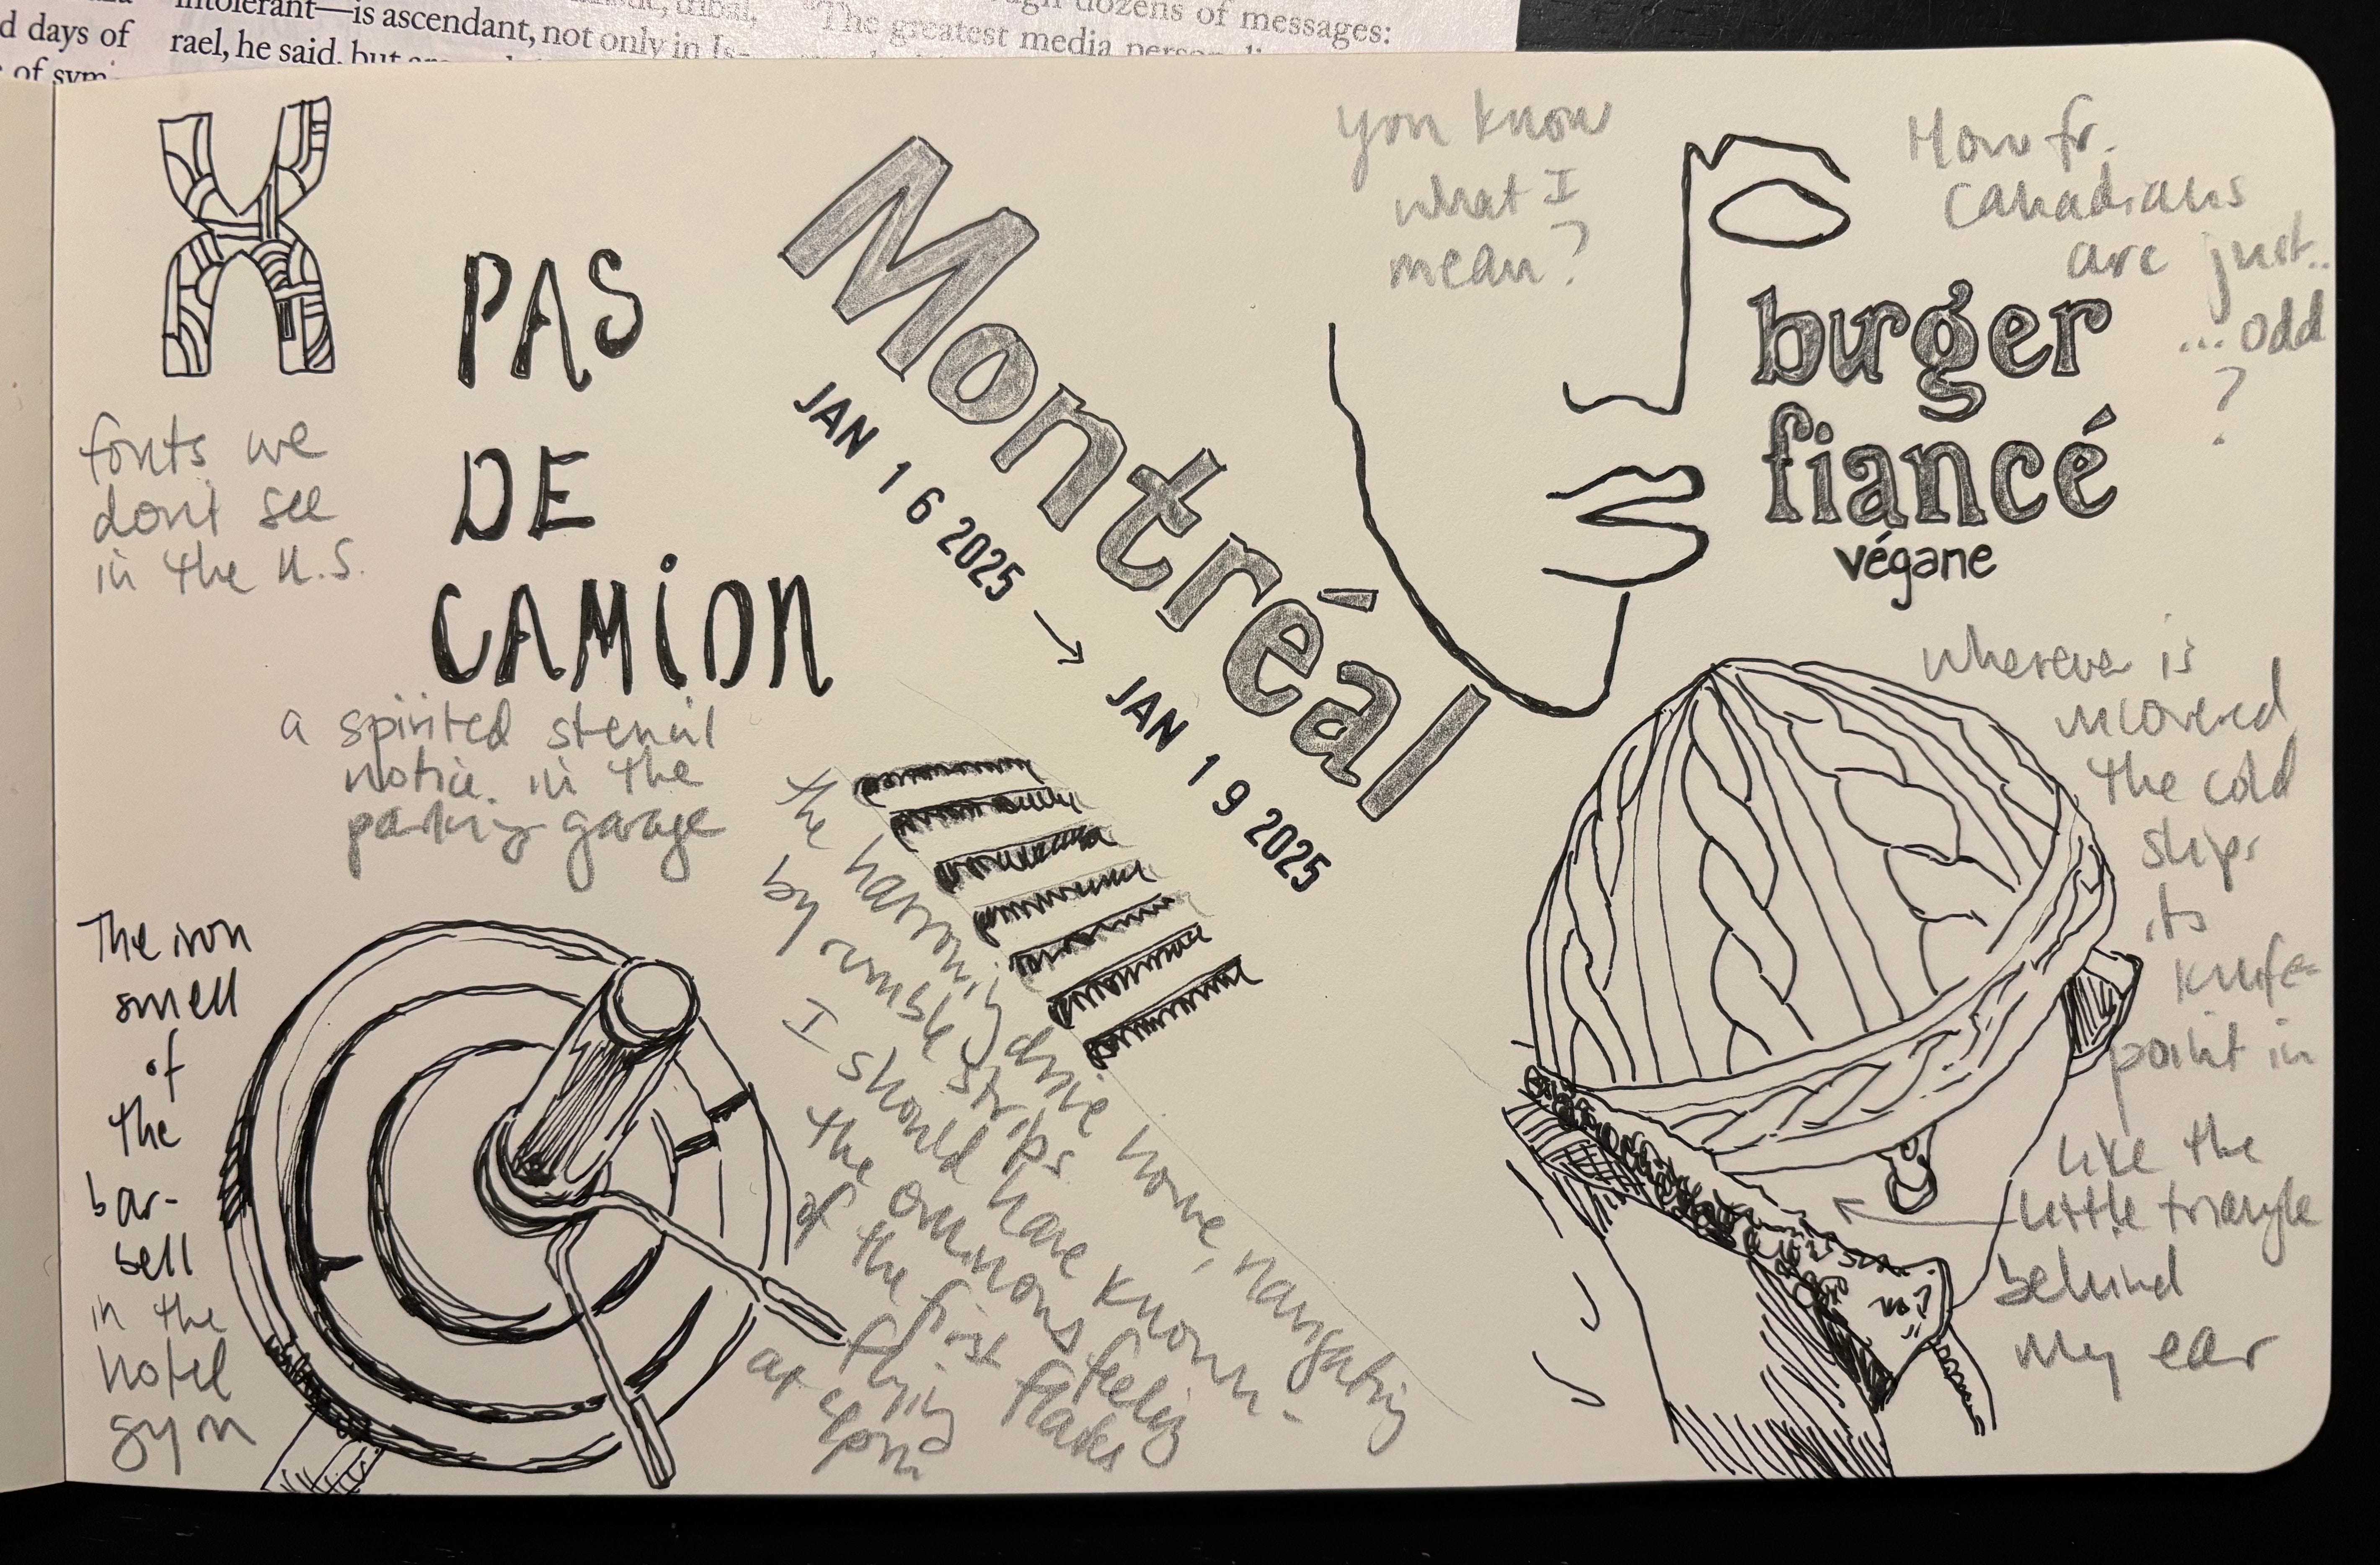 d days of
of sym-
intolerant—is ascendant, not only in Is-
rael, he said, but
tribal,
dozens of messages:
"The greatest media
fonts we
don't see
in the U.S.
PAS
DE
CAMiON
a spirited stencil
notice in the
parking garage
The iron
smell
of
the
bar-
bell
in the
hotel
gym
Montréal
JAN 16 2025 →
JAN 19 2025
the harrowing drive home, navigating
by rumble strips
I should have known -
the ominous feeling
of the first flakes
flying
at 4pm
you know
what I
mean?
How fr.
Canadians
are just..
...odd
?
burger
fiancé
végane
wherever is
uncovered
the cold
slips
its
knife-
point in
like the
little triangle
behind
my ear